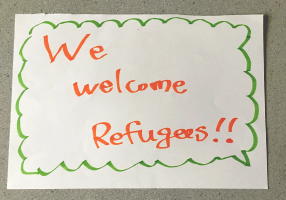 We
welcome
Refugees!!